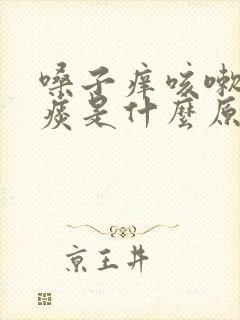 嗓子痒咳嗽
痰是什麼原
京王井